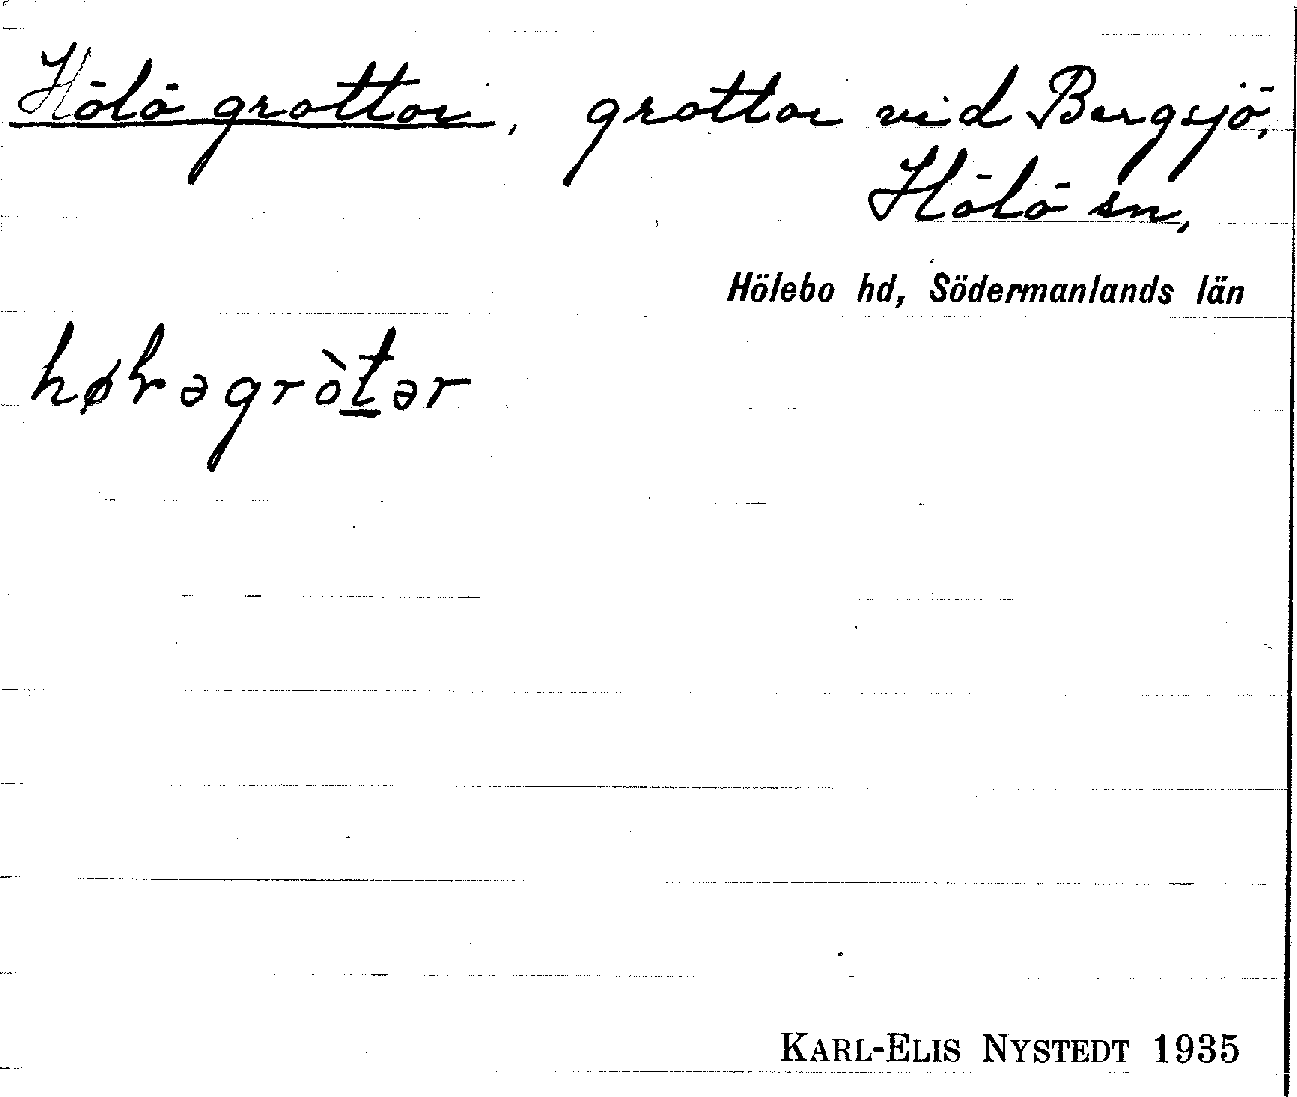 Hölö grottor, grottor vid Bergsjö,
Hölö sn,
Hölebo hd, Södermanlands län
høɫəgròt̲ər
KARL-ELIS NYSTEDT 1935